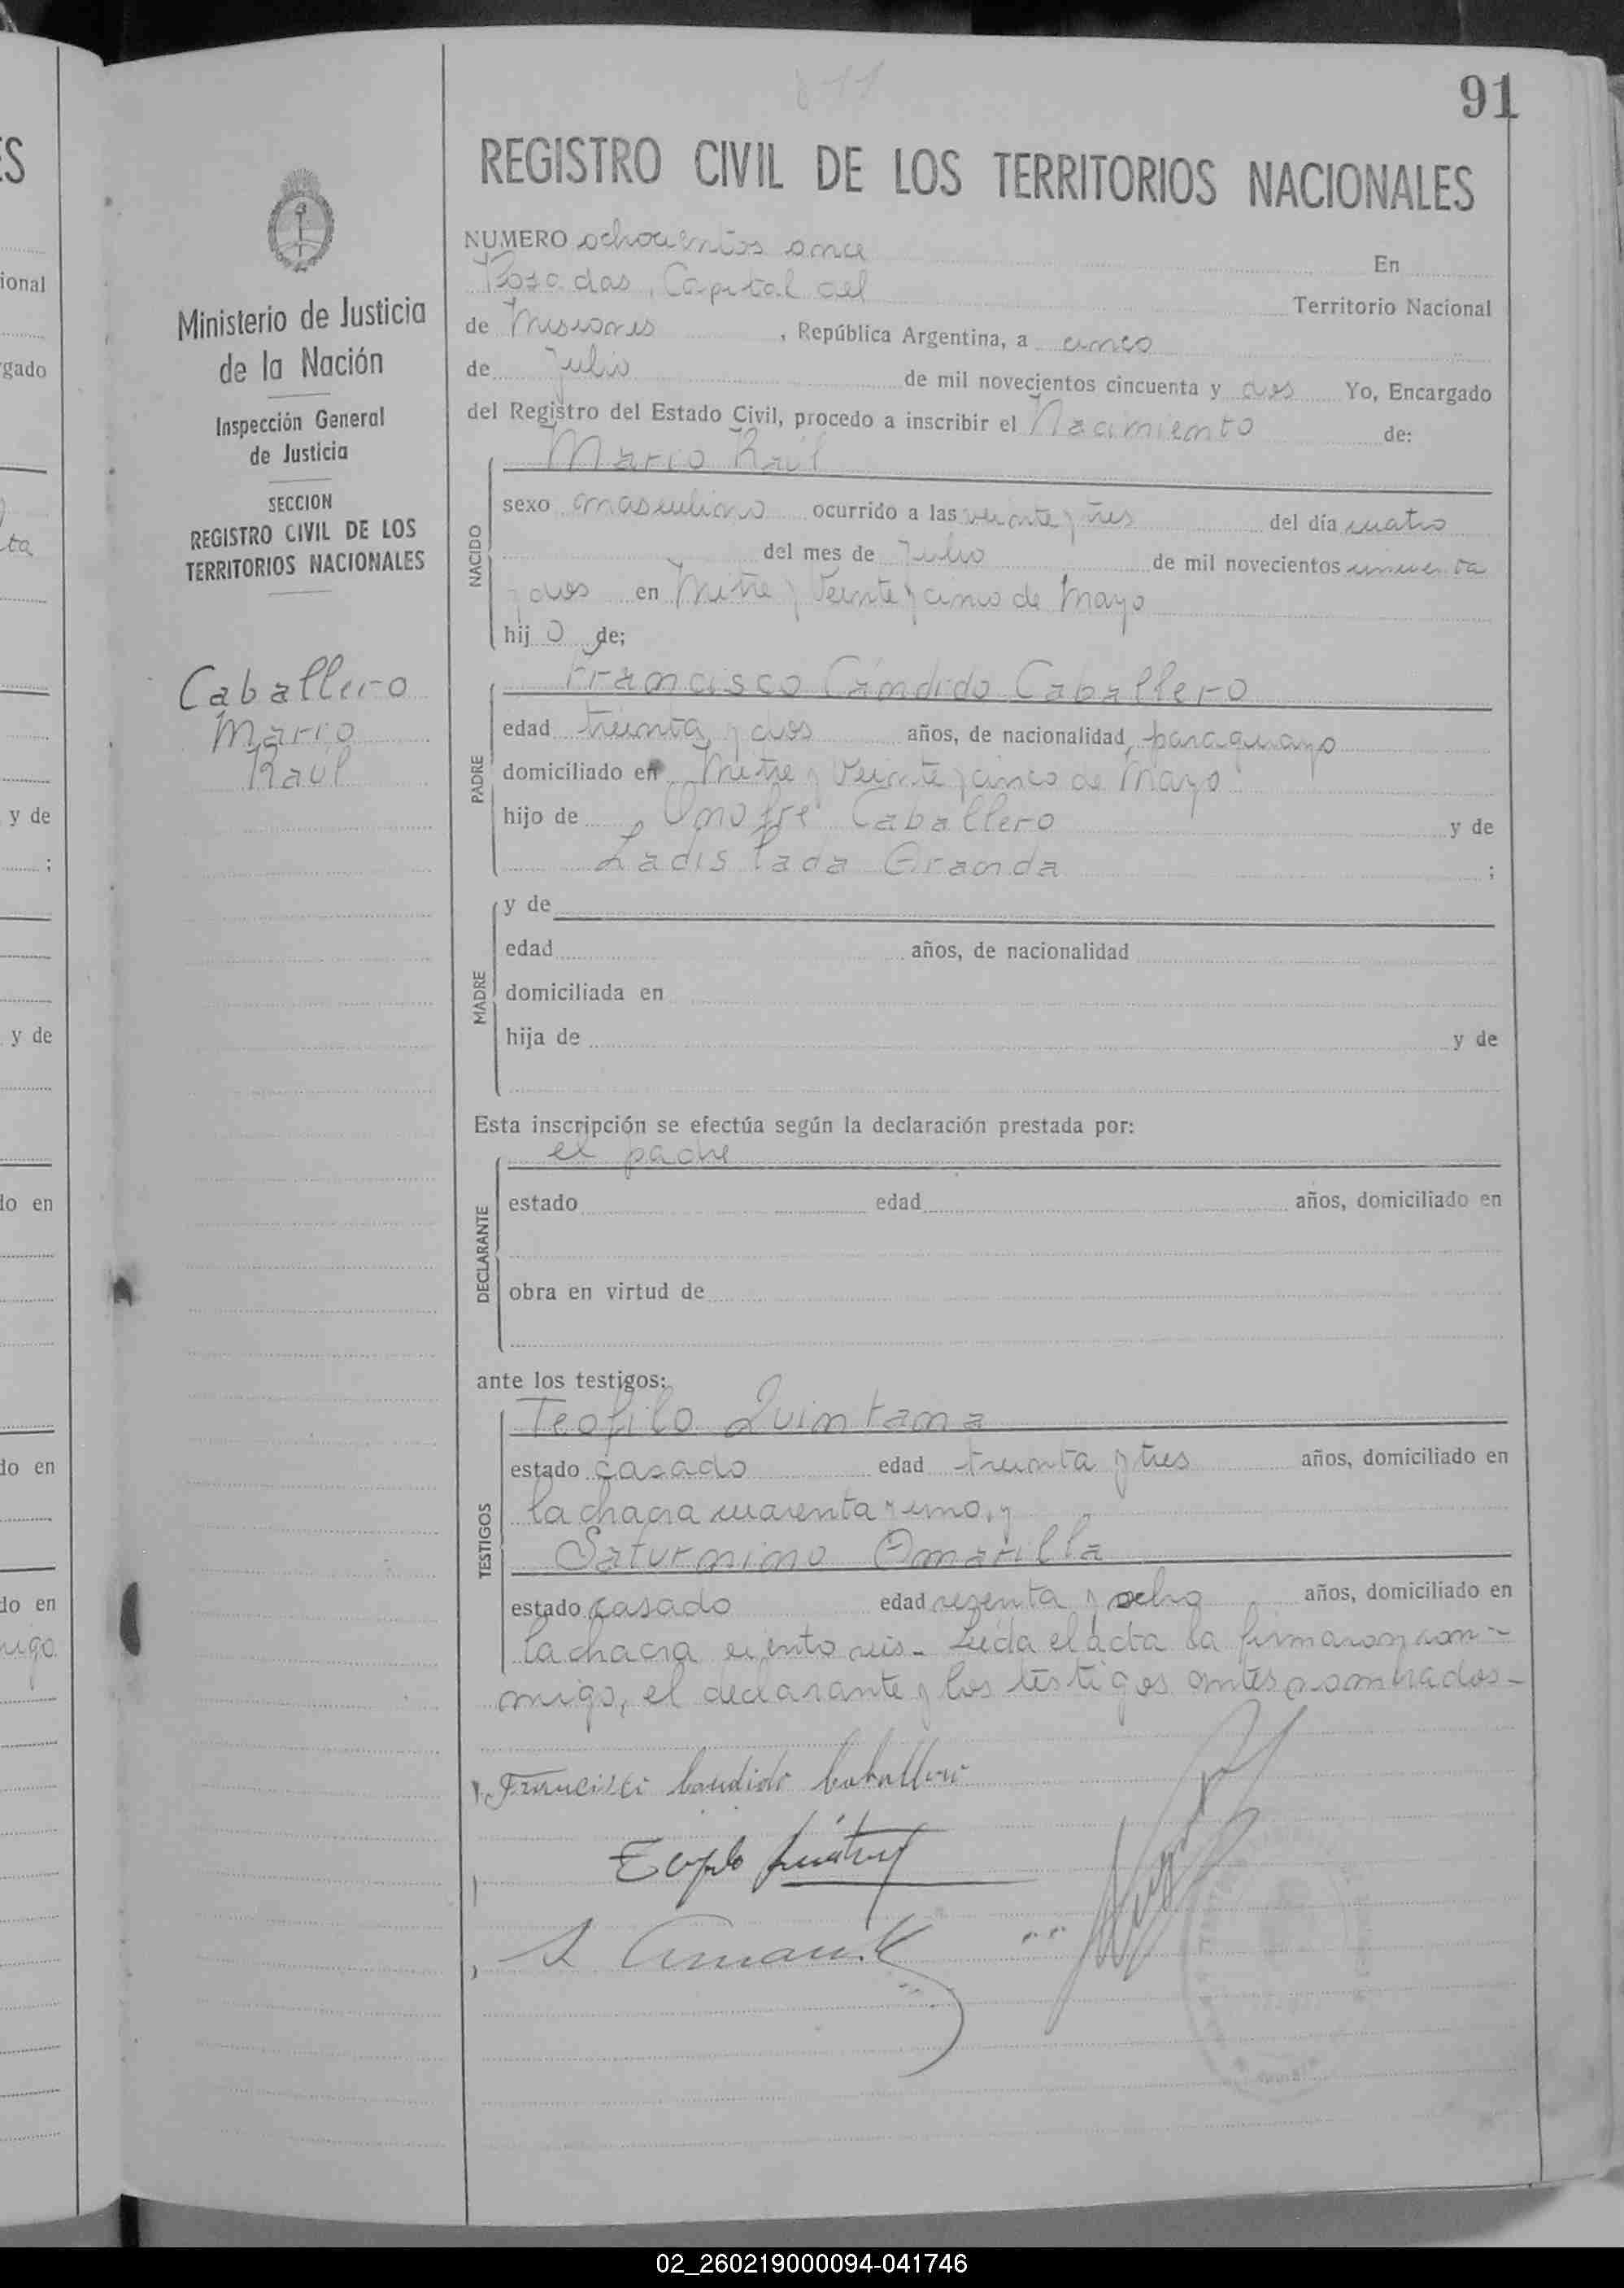 811
91
REGISTRO CIVIL DE LOS TERRITORIOS NACIONALES
NUMERO ochocientos once En
Posadas, Capital del Territorio Nacional
de Misiones, República Argentina, a cinco
de julio de mil novecientos cincuenta y dos Yo, Encargado
del Registro del Estado Civil, procedo a inscribir el Nacimiento de:
Mario Raúl
NACIDO
sexo masculino ocurrido a las veinte y tres del día cuatro
del mes de Julio de mil novecientos cincuenta
y dos en Mitre y Veinte y cinco de Mayo
hijo de;
Francisco Cándido Caballero
PADRE
edad treinta y dos años, de nacionalidad, paraguayo
domiciliado en Mitre y Veinte y cinco de Mayo
hijo de Onofre Caballero y de
Ladislada Aranda ;
MADRE
y de
edad años, de nacionalidad
domiciliada en
hija de y de
Esta inscripción se efectúa según la declaración prestada por:
el padre
DECLARANTE
estado edad años, domiciliado en
obra en virtud de
ante los testigos:
Teofilo Quintana
TESTIGOS
estado casado edad treinta y tres años, domiciliado en
la chacra cuarenta y uno, y
Saturnino Amarilla
estado casado edad sezenta y ocho años, domiciliado en
la chacra ciento seis - Leida el acta la firmaron con-
migo, el declarante y los testigos antes nombrados -
Francisco Candido Caballero
S Amarilla
Ministerio de Justicia
de la Nación
Inspección General
de Justicia
SECCION
REGISTRO CIVIL DE LOS
TERRITORIOS NACIONALES
Caballero
Mario
Raúl
ES
ional
gado
ta
y de
;
y de
do en
do en
do en
migo
02_260219000094-041746